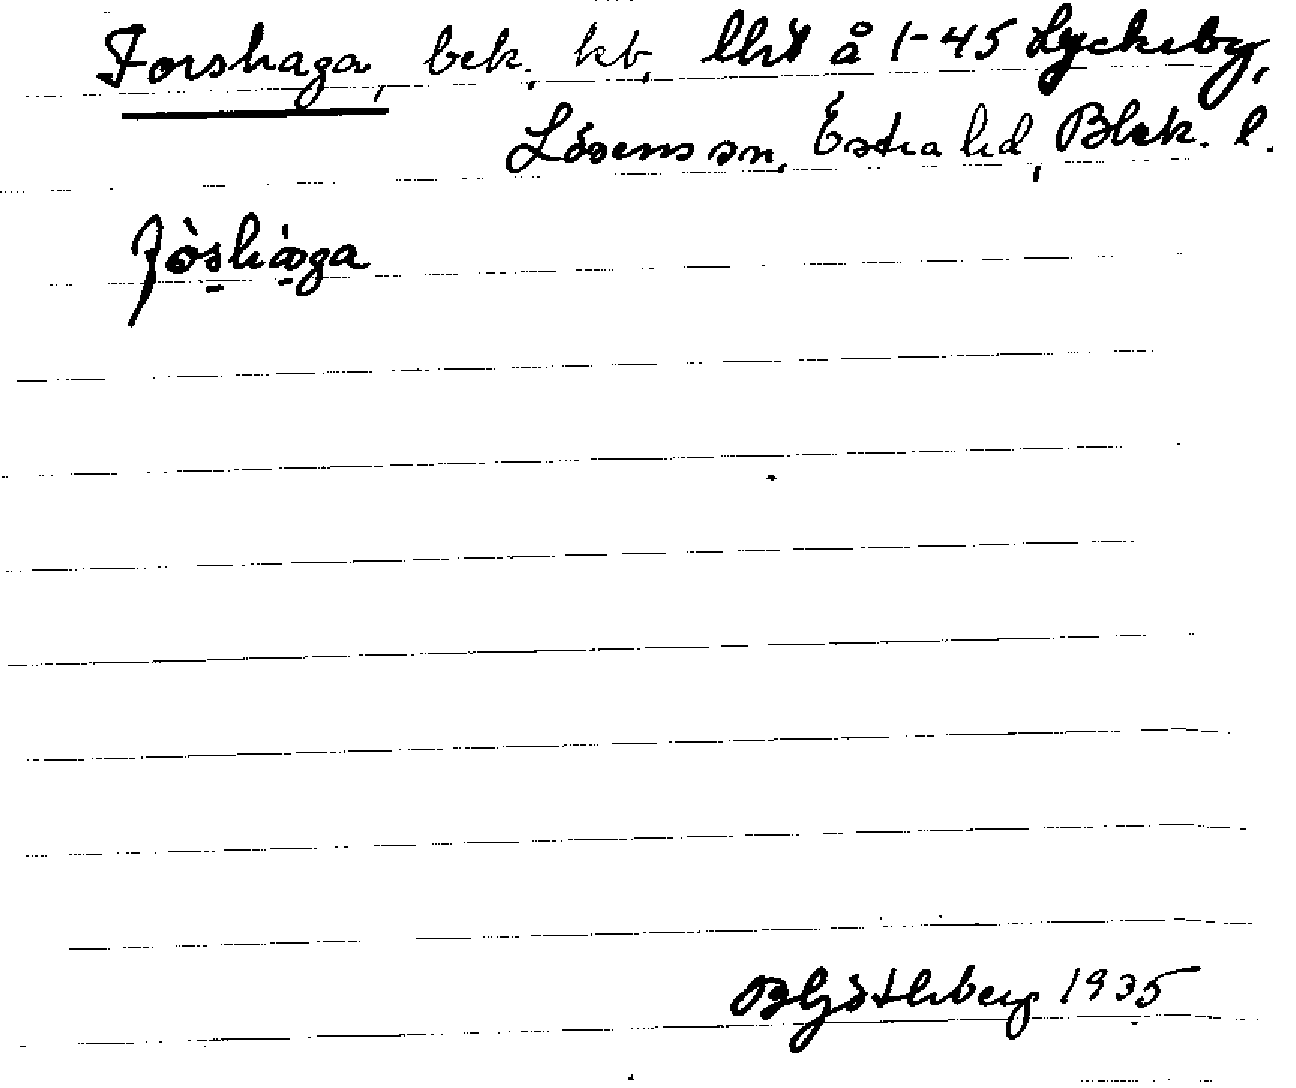 Forshaga, bek. kb, lht å 1-45 Lyckeby,
Lösens sn, Östra hd, Blek. l.
fòs̱ha̱ga
B Götleberg 1935